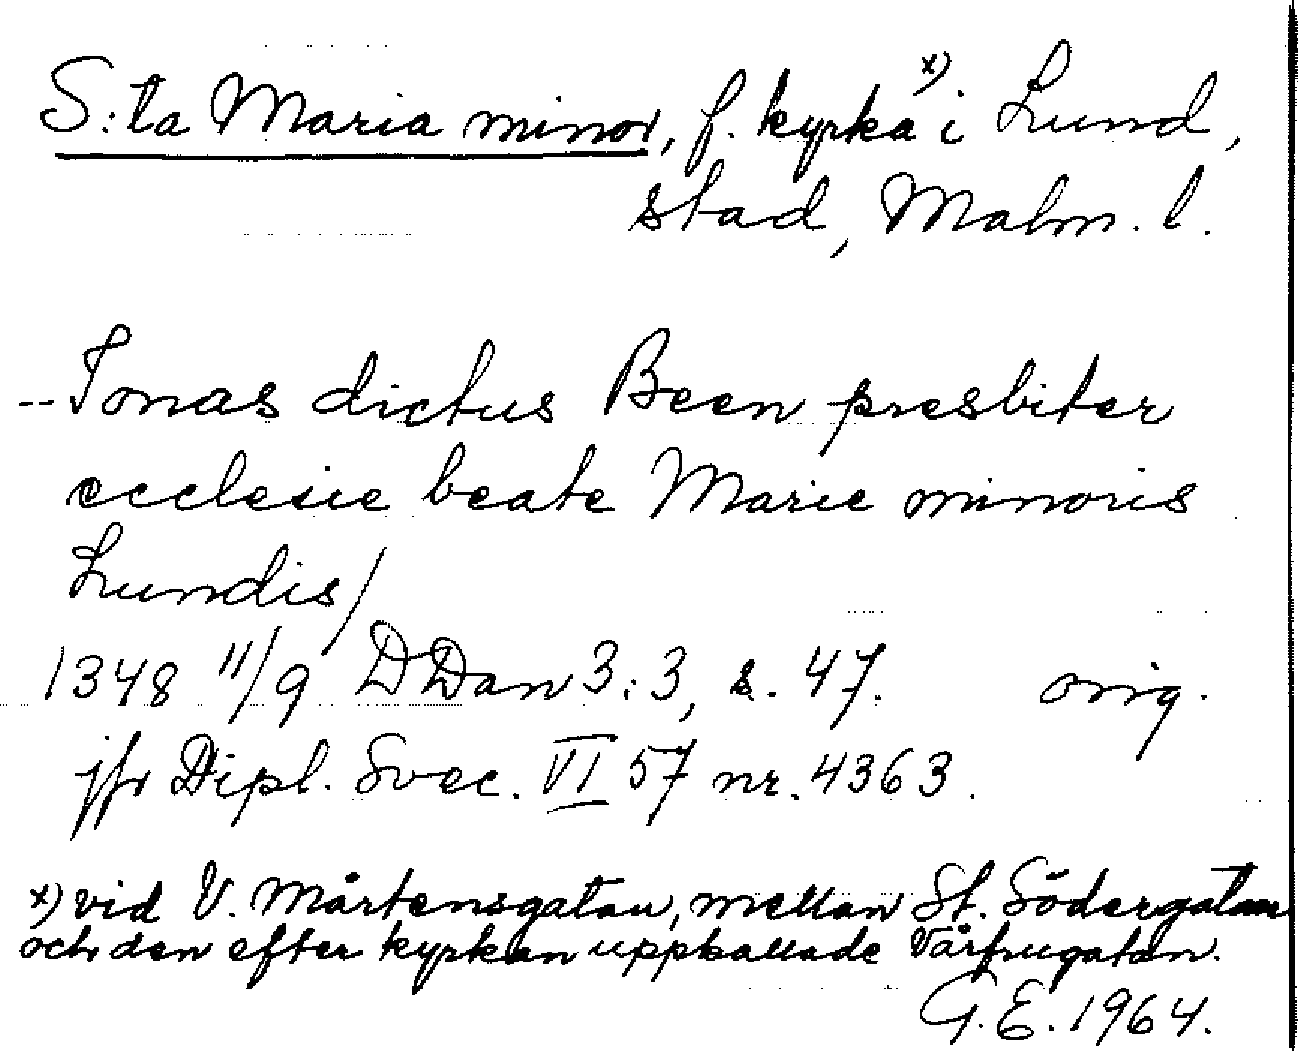 S:ta Maria minor, f. kyrka x) i Lund,
stad, Malm. l.
-- Jonas dictus Been presbiter
ecclesie beate Marie minoris
Lundis/
1348 11/9 DDan 3:3, s. 47. orig.
jfr Dipl. Svec. VI 57 nr. 4363.
x) vid V. Mårtensgatan, mellan St. Södergatan
och den efter kyrkan uppkallade Vårfrugatan.
G.E. 1964.